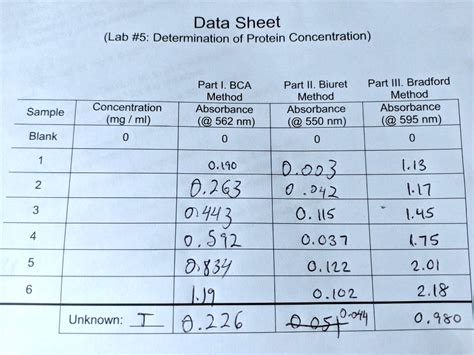 Data Sheet
(Lab #5: Determination of Protein Concentration)
Sample | Concentration (mg / ml) | Part I. BCA Method Absorbance (@ 562 nm) | Part II. Biuret Method Absorbance (@ 550 nm) | Part III. Bradford Method Absorbance (@ 595 nm)
Blank 0 0 0 0
1 0.190 0.003 1.13
2 0.263 0.042 1.17
3 0.443 0.115 1.45
4 0.592 0.037 1.75
5 0.834 0.122 2.01
6 1.19 0.102 2.18
Unknown: I 0.226 0.051 0.044 0.980